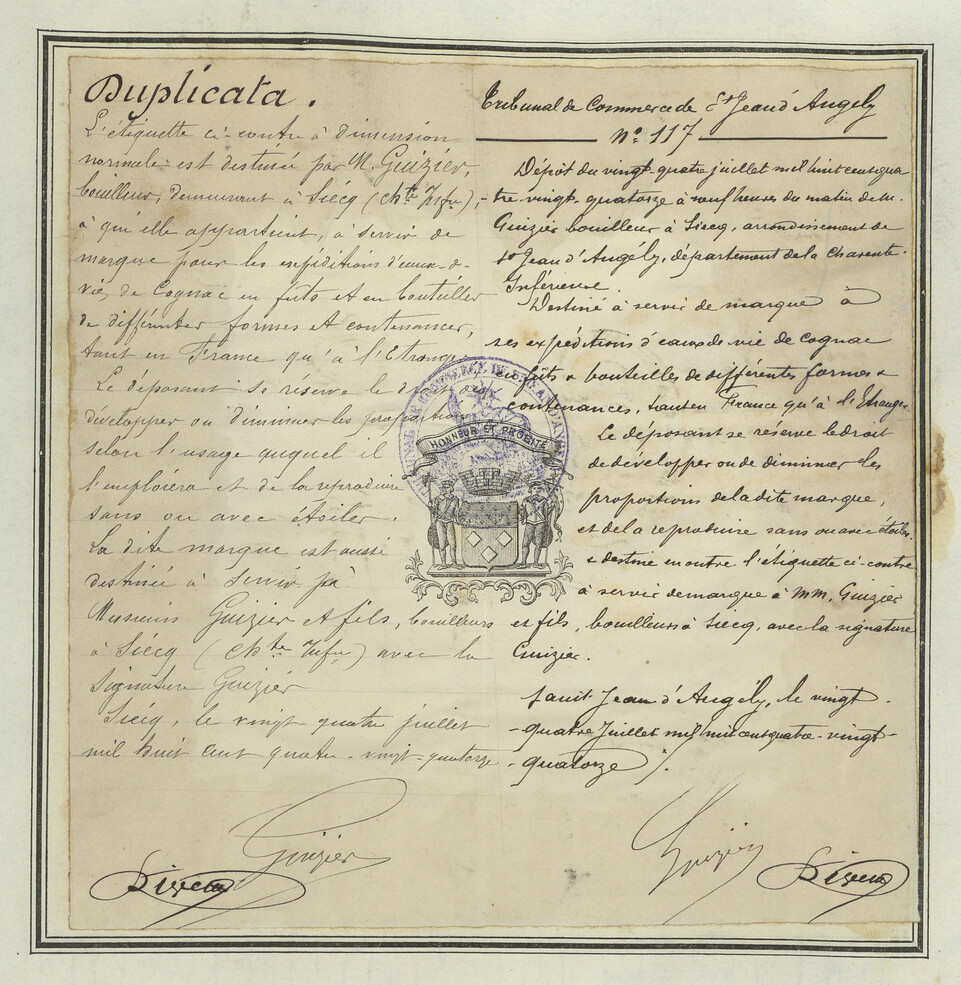 Duplicata.
L'étiquette ci-contre à dimension
normale est destinée par M. Guizier,
bouilleur, demeurant à Siécq (Chte Infre),
à qui elle appartient, à servir de
marque pour les expéditions d'eaux-de-
vie, de Cognac en fûts et en bouteilles
de différentes formes et contenances,
tant en France qu'à l'Etranger
Le déposant se réserve le droit de
développer ou diminuer les proportions
selon l'usage auquel il
l'emploiera et de la reproduire
sans ou avec étoiles.
La dite marque est aussi
destinée à servir à
Messieurs Guizier et fils, bouilleurs
à Siécq (Chte Infre) avec la
signature Guizier
Siécq, le vingt quatre juillet
mil huit cent quatre-vingt-quatorze
Guizier
Tribunal de Commerce de St Jean d'Angély
No. 117
Dépôt du vingt quatre juillet mil huit cent qua
tre-vingt-quatorze à neuf heures du matin de M.
Guizier bouilleur à Siecq, arrondissement de
St Jean d'Angély, département de la Charente-
Inférieure.
Destiné à servir de marque à
ses expéditions d'eaux de vie de cognac
en fûts & bouteilles de différentes formes &
contenances, tant en France qu'à l'Etranger
Le déposant se réserve le droit
de développer ou de diminuer les
proportions de la dite marque,
et de la reproduire sans ou avec étoiles.
& destine en outre l'étiquette ci-contre
à servir de marque à MM. Guizier
et fils, bouilleurs à Siecq, avec la signature
Guizier.
Saint Jean d'Angély, le vingt-
quatre Juillet mil huit cent quatre-vingt-
quatorze
Guizier
HONNEUR ET PROBITÉ